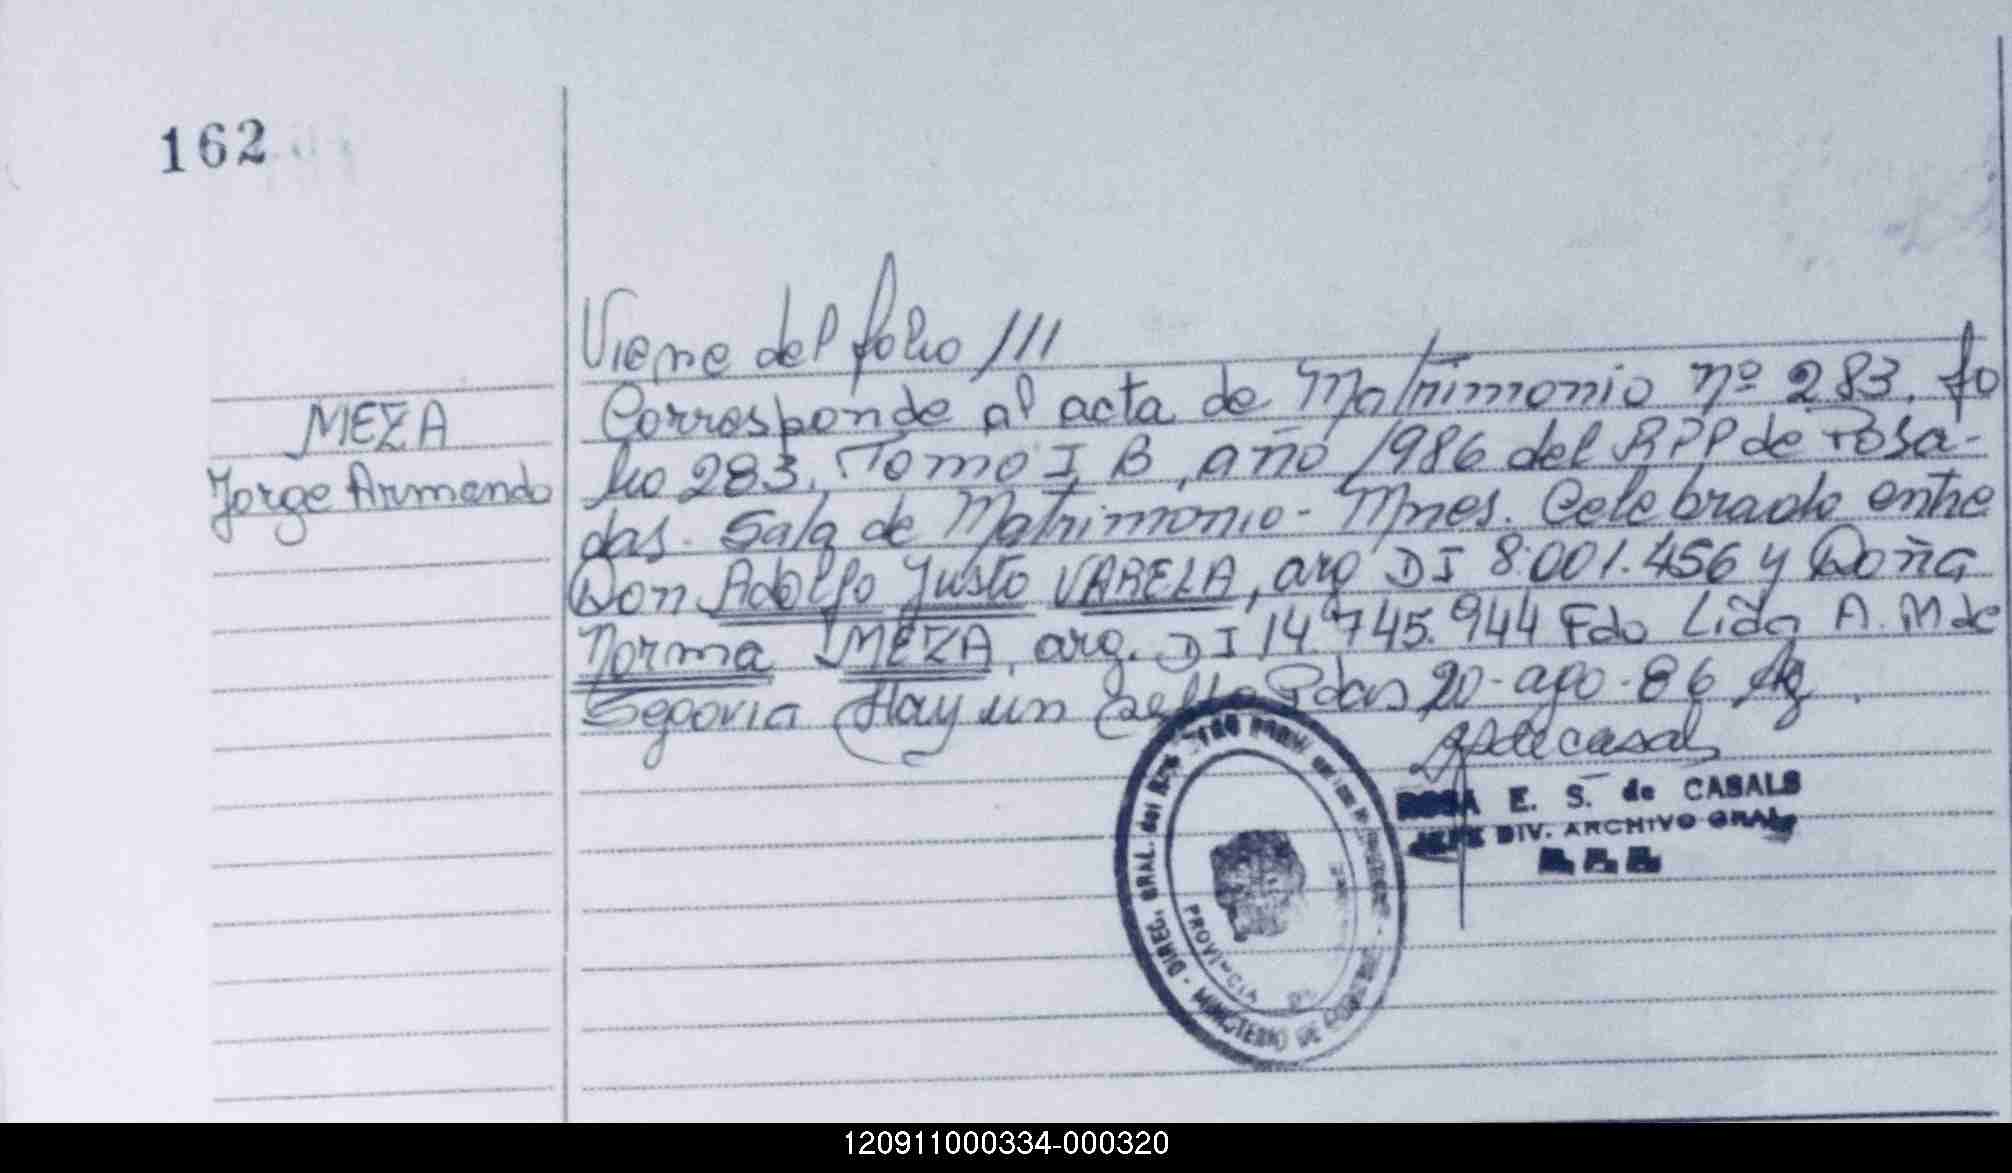 162
MEZA
Jorge Armando
Viene del folio ///
Corresponde al acta de Matrimonio nº 283, fo
lio 283, Tomo I B, año 1986 del RPP de Posa-
das. Sala de Matrimonio - Mnes. Celebrado entre
Don Adolfo Justo VARELA, arg DI 8.001.456 y Doña
Norma MEZA, arg. DI 14.745.944 Fdo Lida A. M de
Segovia Hay un sello Pdas 20-ago-86
ROSA E. S. de CASALS
JEFE DIV. ARCHIVO GRAL
DIREC. GRAL. del
MINISTERIO DE
PROVINCIA
120911000334-000320